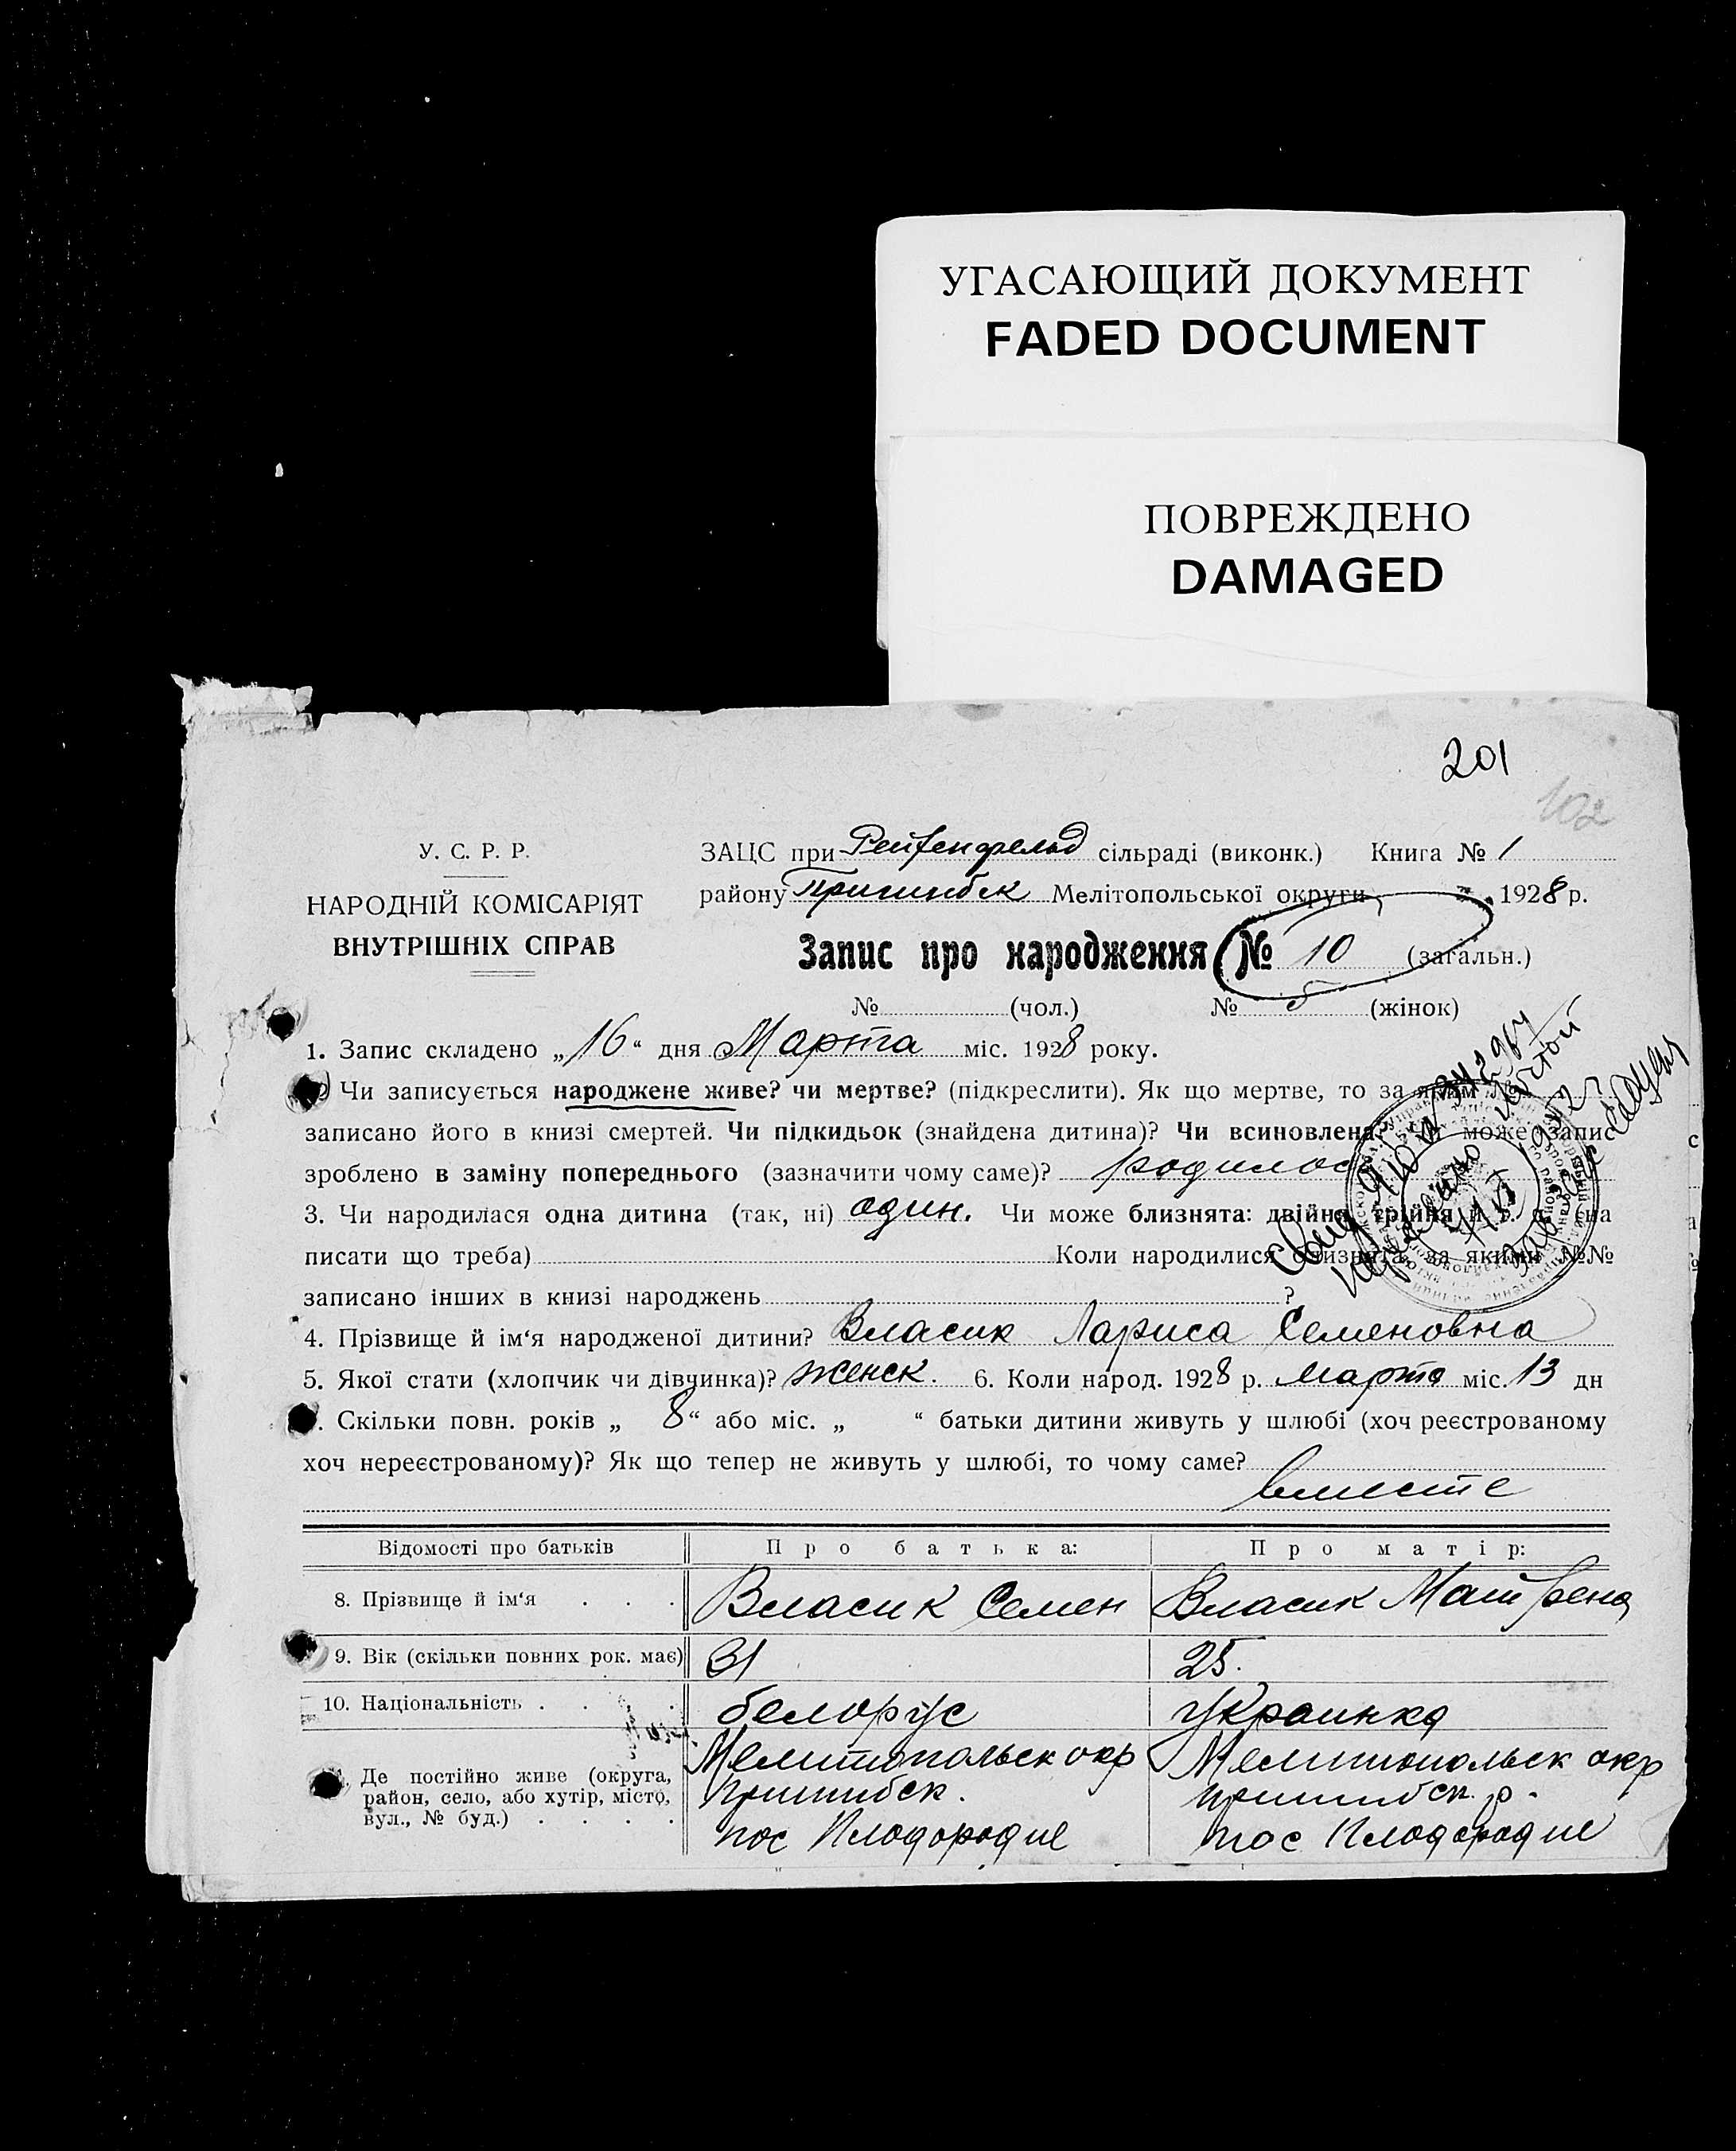 УГАСАЮЩИЙ ДОКУМЕНТ
FADED DOCUMENT
ПОВРЕЖДЕНО
DAMAGED
201
102
У. С. Р. Р.
НАРОДНІЙ КОМІСАРІЯТ
ВНУТРІШНІХ СПРАВ
ЗАЦС при Рейхенфельд сільраді (виконк.) Книга № 1
району Пришибск Мелітопольської округи 1928 р.
Запис про народження № 10 (загальн.)
№ (чол.) № 5 (жінок)
1. Запис складено „16“ дня Марта міс. 1928 року.
Чи записується народжене живе? чи мертве? (підкреслити). Як що мертве, то за яким №
записано його в книзі смертей. Чи підкидьок (знайдена дитина)? Чи всиновлена? Чи може запис
зроблено в заміну попереднього (зазначити чому саме)? родилос
3. Чи народилася одна дитина (так, ні) один. Чи може близнята: двійня, трійня и т. д. (на
писати що треба) Коли народилися близнята, за якими №№
записано інших в книзі народжень ?
4. Прізвище й ім‘я народженої дитини? Власик Лариса Семеновна
5. Якої стати (хлопчик чи дівчинка)? женск. 6. Коли народ. 1928 р. марта міс. 13 дн
. Скільки повн. років „ 8“ або міс. „ “ батьки дитини живуть у шлюбі (хоч реєстрованому
хоч нереєстрованому)? Як що тепер не живуть у шлюбі, то чому саме?
вместе
Відомості про батьків Про батька: Про матір:
8. Прізвище й ім‘я . . . Власик Семен Власик Матрена
9. Вік (скільки повних рок. має) 31 25.
10. Національність . . . белорус украинка
Де постійно живе (округа, район, село, або хутір, місто, вул., № буд.) . . . .
Мелитопольск окр Мелитопольск окр
Пришибск. Пришибск. р.
пос Плодородие пос Плодородие